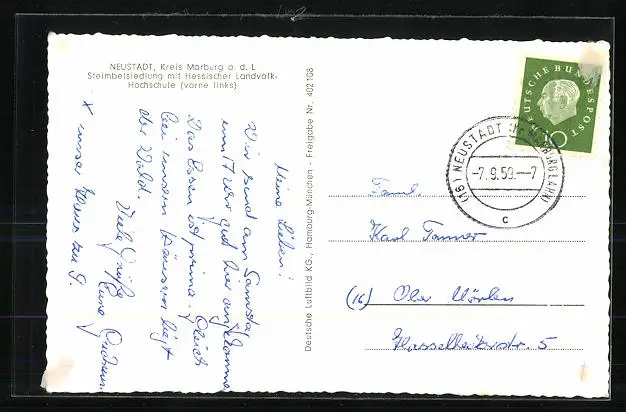 NEUSTADT, Kreis Marburg a. d. L
Steimbelsiedlung mit Hessischer Landvolk-
Hochschule (vorne links)
Meine Lieben!
Wir sind am Samstag
um 17 Uhr gut hier angekommen
Das Essen ist prima. Gleich
bei unsern Häusern liegt
der Wald.
Viele Grüße
Eure
x unser Haus
Deutsche Luftbild KG., Hamburg-München - Freigabe Nr. 402108
DEUTSCHE BUNDESPOST
10
(16) NEUSTADT (Kr MARBURG LAHN)
-7.9.59.--7
c
Faml.
Karl Tanner
(16) Ober Mörlen
Hasselheckerstr. 5